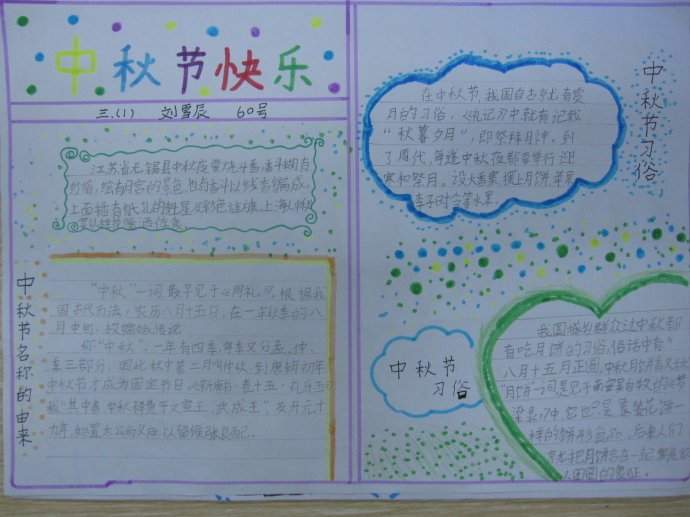 中秋节快乐
三.(1) 刘雪辰 60号
江苏省无锡县中秋夜要烧斗香。香斗糊有
纱绢，绘有月宫的景色。也有香斗以线香编成，
上面插有纸扎的魁星及彩色旌旗。上海人
宴以桂花蜜酒佐食。
中秋节名称的由来
“中秋”一词，最早见于《周礼》。根据我
国古代历法，农历八月十五日，在一年秋季的八
月中旬，故
称“中秋”。一年有四季，每季又分孟、仲、
季三部分，因此秋中第二月叫仲秋，到唐朝初年，
中秋节才成为固定节日。《新唐书·卷十五·礼乐五》
载“其中春、中秋释奠于文宣王、武成王”，及“开元十
九年，始置太公尚父庙，以留侯张良配。
在中秋节，我国自古就有赏
月的习俗，《礼记》中就有记载
“秋暮夕月”，即祭拜月神。到
了周代，每逢中秋夜都要举行迎
寒和祭月。设大香案，摆上月饼、苹果、
李子时令等水果。
中秋节习俗
中秋节
习俗
我国城乡群众过中秋都
有吃月饼的习俗，俗话中有：“
八月十五月正圆，中秋月饼香又
“月饼”一词，是见于南宋吴自牧的《梦
梁录》中，它也只是象菱花饼一
样的饼形食品。后来人们
就把月饼
人团圆的象征。